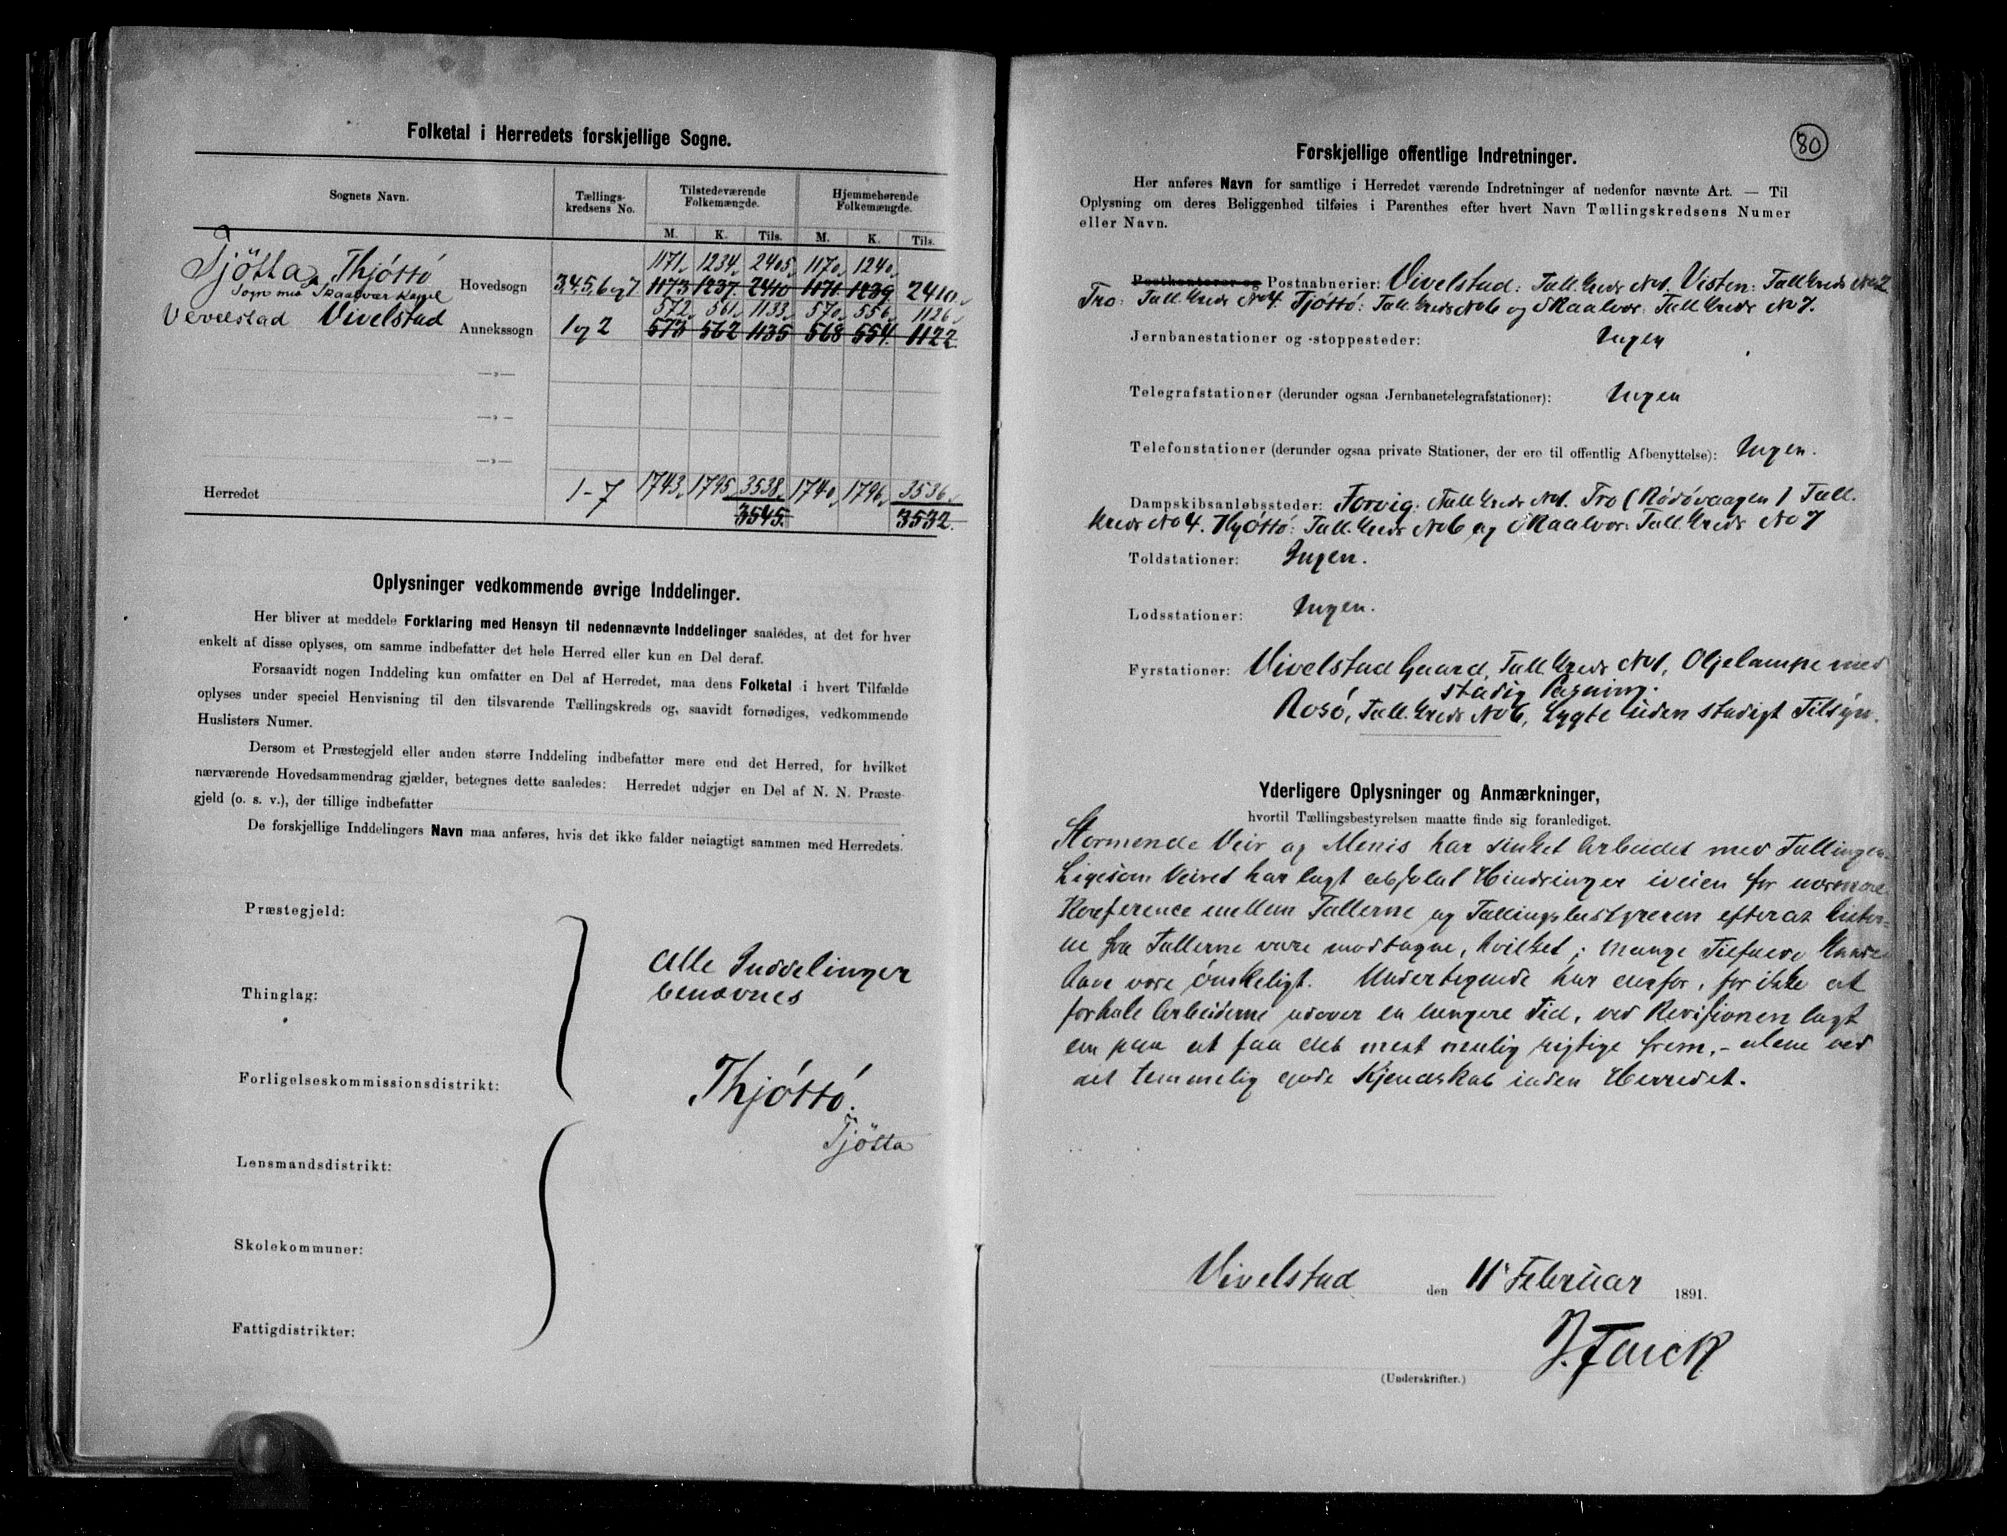 Folketal i Herredets forskjellige Sogne.
Sognets Navn.
Tællings-
kredsens No.
Tilstedeværende
Folkemængde.
Hjemmehørende
Folkemængde.
M. K. Tils. M. K. Tils.
1171. 1234. 2405. 1170. 1240.
Tjötta Thjóttó Hovedsogn 3,4,5,6 og 7 1173 1237. 2410 1171 1239 2410.
Sogn med Skaalvær Kapel
572. 561. 1133. 570. 556. 1126.
Vevelstad Vivelstad Annekssogn 1 og 2 573 562 1135 568 554. 1122.
—„—
—„—
—„—
Herredet 1-7 1743. 1795 3538. 1740. 1796. 3536.
3545. 3532.
Oplysninger vedkommende øvrige Inddelinger.
Her bliver at meddele Forklaring med Hensyn til nedennævnte Inddelinger saaledes, at det for hver
enkelt af disse oplyses, om samme indbefatter det hele Herred eller kun en Del deraf.
Forsaavidt nogen Inddeling kun omfatter en Del af Herredet, maa dens Folketal i hvert Tilfælde
oplyses under speciel Henvisning til den tilsvarende Tællingskreds og, saavidt fornødiges, vedkommende
Huslisters Numer.
Dersom et Præstegjeld eller anden større Inddeling indbefatter mere end det Herred, for hvilket
nærværende Hovedsammendrag gjælder, betegnes dette saaledes: Herredet udgjør en Del af N. N. Præste-
gjeld (o. s. v.), der tillige indbefatter
De forskjellige Inddelingers Navn maa anføres, hvis det ikke falder nøiagtigt sammen med Herredets.
Præstegjeld:
Alle Inddelinger
benævnes
Thinglag:
Forligelseskommissionsdistrikt:
Thjóttó.
Tjötta
Lensmandsdistrikt:
Skolekommuner:
Fattigdistrikter:
80
Forskjellige offentlige Indretninger.
Her anføres Navn for samtlige i Herredet værende Indretninger af nedenfor nævnte Art. — Til
Oplysning om deres Beliggenhed tilføies i Parenthes efter hvert Navn Tællingskredsens Numer
eller Navn.
Postkontorer og Postaabnerier: Vivelstad: Tall. Kreds No 1. Visten: Tall Kreds No 2
Tro: Tall. Kreds No 4. Tjóttó: Tall. Kreds No 6 og Skaalvær: Tall Kreds No 7.
Jernbanestationer og -stoppesteder: Ingen
Telegrafstationer (derunder ogsaa Jernbanetelegrafstationer): Ingen
Telefonstationer (derunder ogsaa private Stationer, der ere til offentlig Afbenyttelse): Ingen.
Dampskibsanløbssteder: Forvig: Tall Kreds No 1. Tro (Rödövaagen) Tall.
Kreds No 4. Thjóttó: Tall. Kreds No 6 og Skaalvær: Tall Kreds No 7
Toldstationer: Ingen.
Lodsstationer: Ingen.
Fyrstationer: Vivelstad Gaard, Tall Kreds No 1, Oljelampe med
stadig Pasning.
Rosó, Tall. Kreds No 6, Lygte uden stadigt Tilsyn.
Yderligere Oplysninger og Anmærkninger,
hvortil Tællingsbestyrelsen maatte finde sig foranlediget.
Stormende Veir og Menis har sinket Arbeidet med Tallingen.
Ligesom Veiret har lagt absolut Hindringer iveien for
Konference mellem Tallerne og Tallingsbestyreren efterat Lister-
ne fra Tallerne vare modtagne, hvilket i mange Tilfælde kunde
have være ónskeligt. Undertegnede har derfor, for ikke at
forhale Arbeiderne udover en længere Tid, ved Revisionen lagt
an paa at faa det mest mulig rigtige frem, - alene ved
det temmelig gode Kjendskab inden Herredet.
Vivelstad den 11' Februar 1891.
(Underskrifter.)